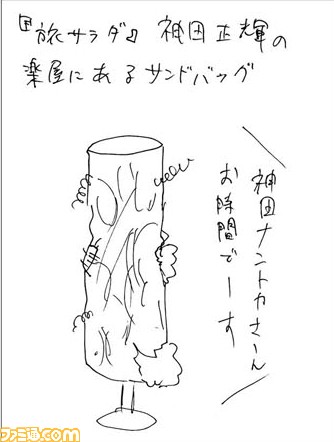 『旅サラダ』神田正輝の
楽屋にあるサンドバッグ
神田ナントカさーん
お時間でーす
ファミ通.com